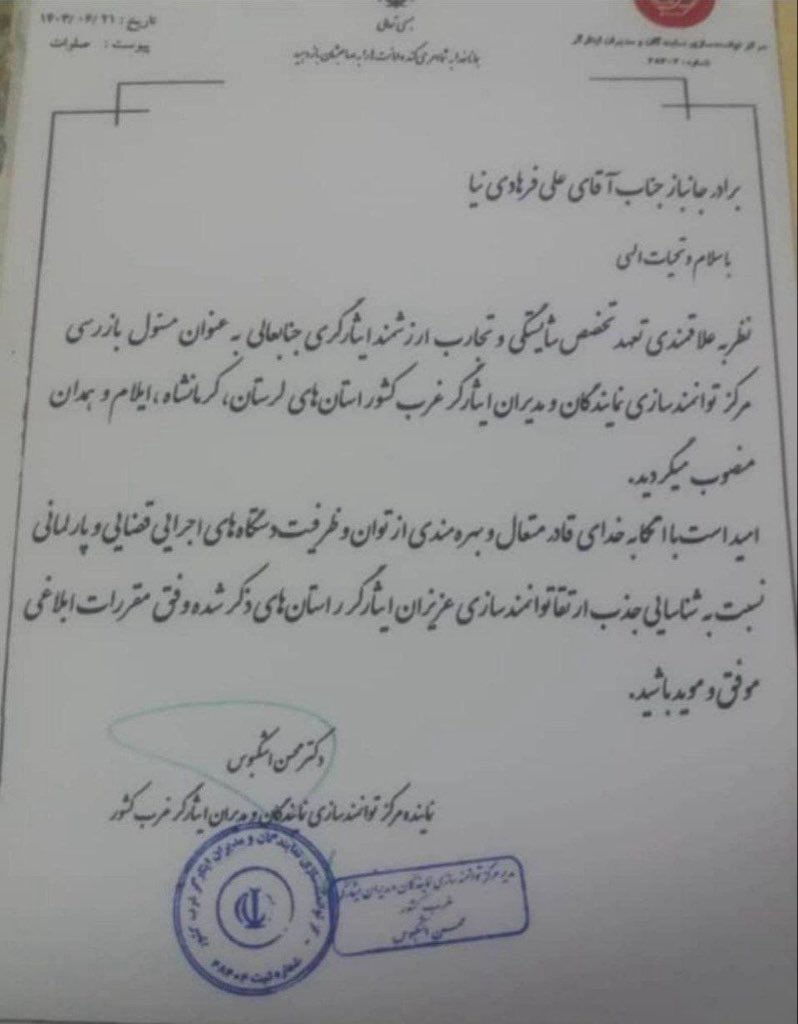 تاریخ: ۱۴۰۳/۰۶/۲۱
پیوست: صلوات
بسمی تعالی
مرکز توانمندسازی نمایندگان و مدیران ایثارگر
برادر جانباز جناب آقای علی فرهادی نیا
با سلام و تحیات الهی
نظر به علاقمندی تعهد تخصص شایستگی و تجارب ارزشمند ایثارگری جنابعالی به عنوان مسئول بازرسی
مرکز توانمندسازی نمایندگان و مدیران ایثارگر غرب کشور استان های لرستان، کرمانشاه، ایلام و همدان
منصوب میگردید.
امید است با اتکا به خدای قادر متعال و بهره مندی از توان و ظرفیت دستگاه های اجرایی قضایی و پارلمانی
نسبت به شناسایی جذب ارتقا توانمندسازی عزیزان ایثارگر در استان های ذکر شده وفق مقررات ابلاغی
موفق و موید باشید.
دکتر محسن اشکبوس
نماینده مرکز توانمندسازی نمایندگان و مدیران ایثارگر غرب کشور
مدیر مرکز توانمندسازی نمایندگان و مدیران ایثارگر
غرب کشور
محسن اشکبوس
مرکز توانمندسازی نمایندگان و مدیران ایثارگر غرب کشور
شماره ثبت ۴۸۴۰۴